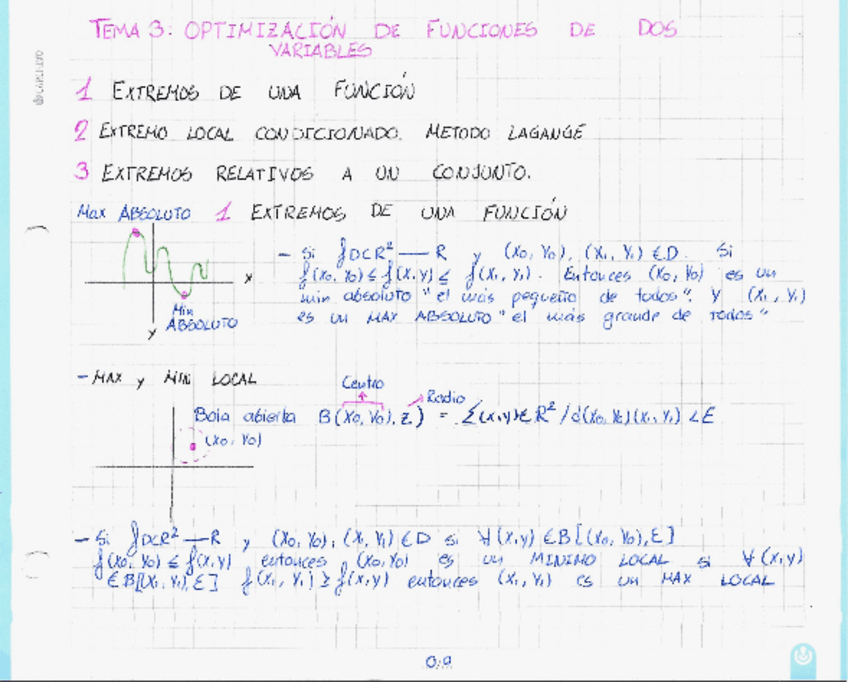 TEMA 3: OPTIMIZACIÓN DE FUNCIONES DE DOS
VARIABLES
1 EXTREMOS DE UNA FUNCIÓN
2 EXTREMO LOCAL CONDICIONADO. METODO LAGANGE
3 EXTREMOS RELATIVOS A UN CONJUNTO.
Max ABSOLUTO
1 EXTREMOS DE UNA FUNCIÓN
x
Min
ABSOLUTO
y
- Si f DCR² — R y (x₀, y₀), (x₁, y₁) ∈D. Si
f(x₀, y₀) ≤ f(x,y) ≤ f(x₁, y₁). Entonces (x₀, y₀) es un
min absoluto "el más pequeño de todos". y (x₁, y₁)
es un MAX ABSOLUTO "el más grande de todos"
- MAX y MIN LOCAL
Centro
Radio
Bola abierta B(x₀, y₀), ε) = {(x,y)∈ R² / d(x₀, y₀)(x₁, y₁) < ε
(x₀, y₀)
- Si f DCR² — R y (x₀, y₀), (x₁, y₁) ∈D si ∀(x,y) ∈B[(x₀, y₀), ε]
f(x₀, y₀) ≤ f(x,y) entonces (x₀,y₀) es un MINIMO LOCAL si ∀(x,y)
∈B[(x₁, y₁), ε] f(x₁, y₁) ≥ f(x,y) entonces (x₁, y₁) es un MAX LOCAL